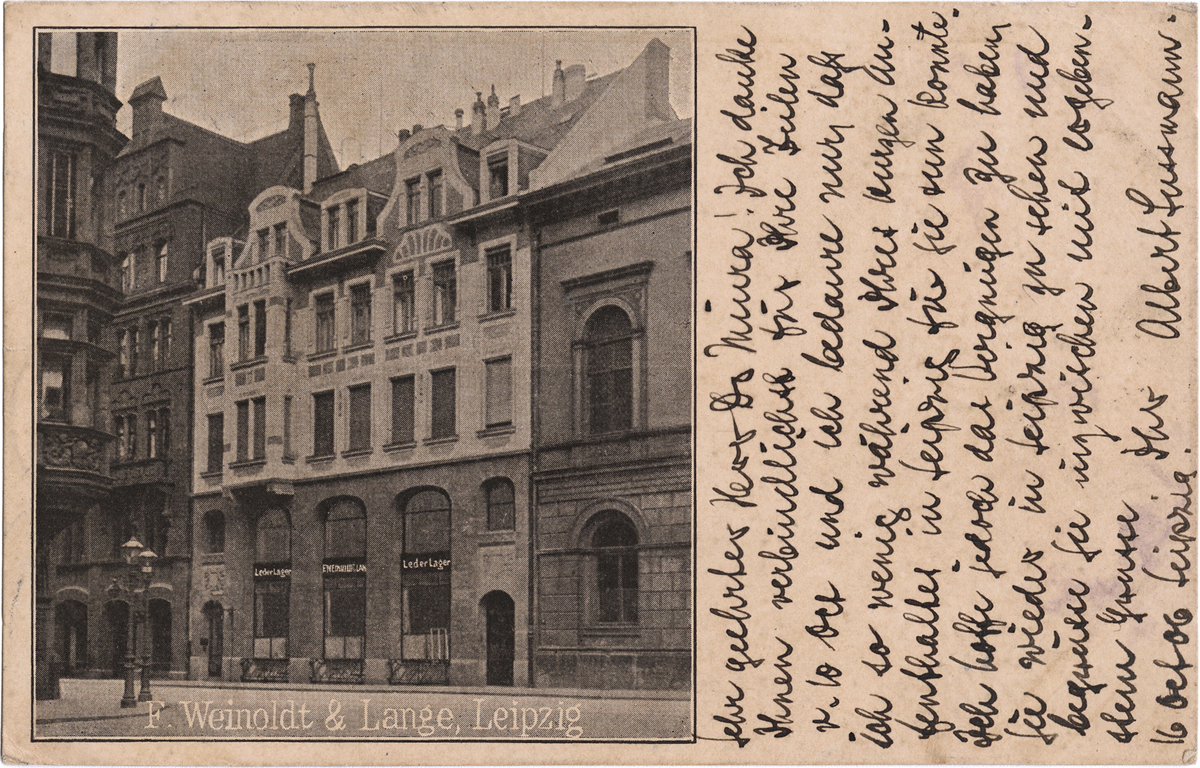 Leder Lager
F. WEINOLDT & LAN
Leder Lager
F. Weinoldt & Lange, Leipzig
Sehr geehrter Herr Dr Minra! Ich danke
Ihnen verbindlichst für Ihre Zeilen
v. 10 Oct und ich bedaure nur, daß
ich so wenig während Ihres kurzen Au-
fenthaltes in Leipzig für Sie tun konnte.
Ich hoffe jedoch das Vergnügen zu haben,
Sie wieder in Leipzig zu sehen und
begrüsse Sie inzwischen mit ergeben-
stem Grusse Ihr Albert Sussmann.
16 Oct 06 Leipzig.